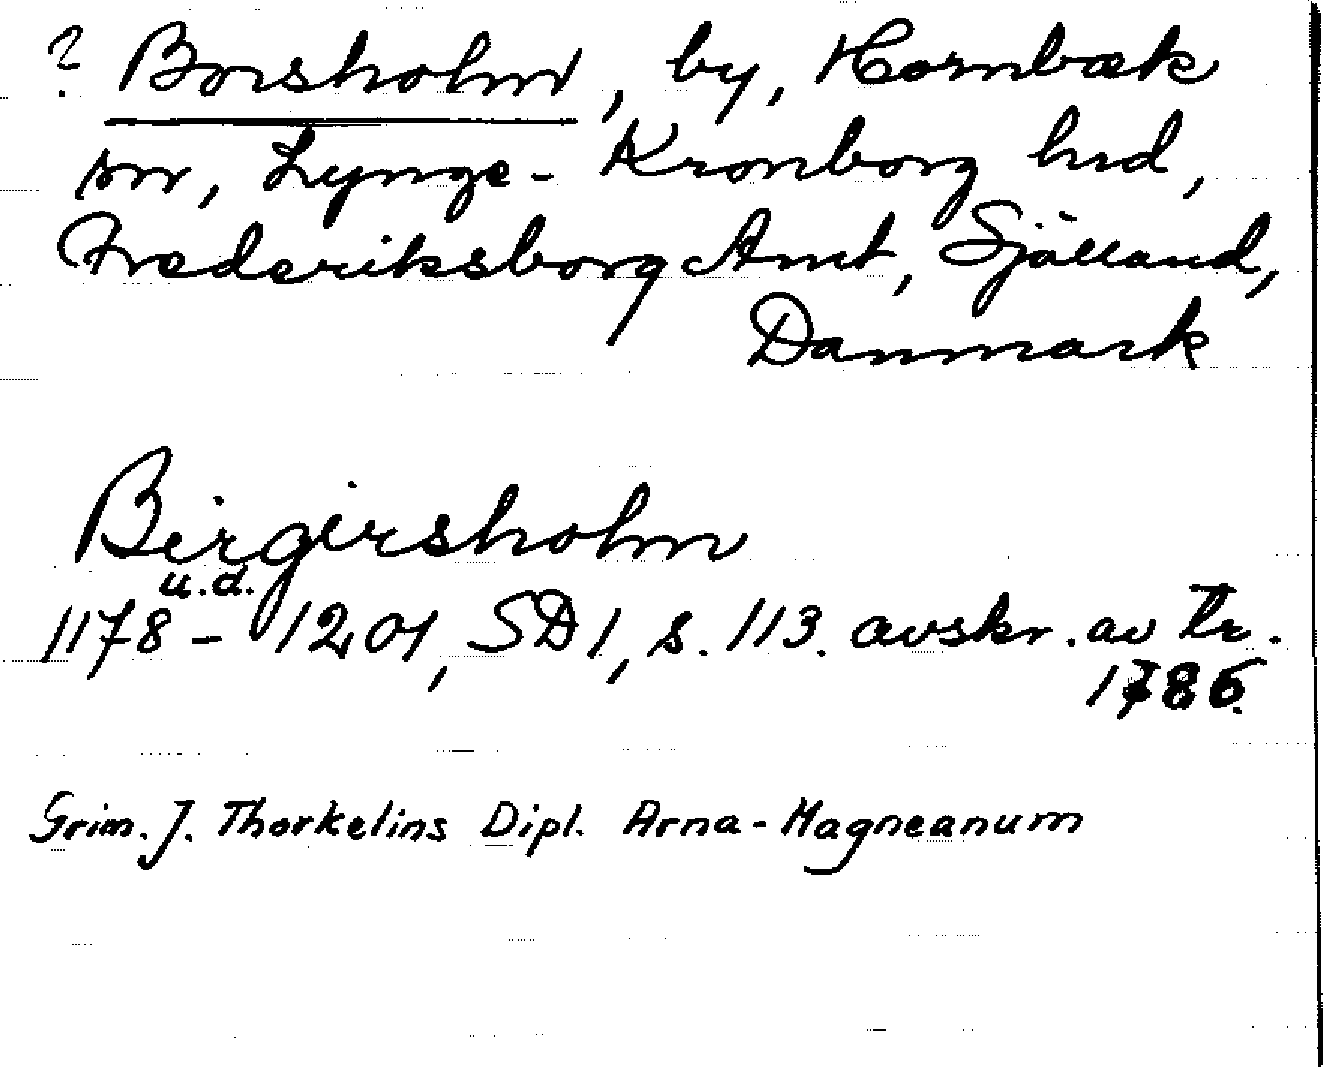 ? Borsholm, by, Hornbæk
sn, Lynge-Kronborg hrd,
Frederiksborg Amt, Sjælland,
Danmark
Birgirsholm
u.d.
1178-1201, SD1, s. 113. avskr. av Tr.
1786.
Grim. J. Thorkelins Dipl. Arna-Magneanum